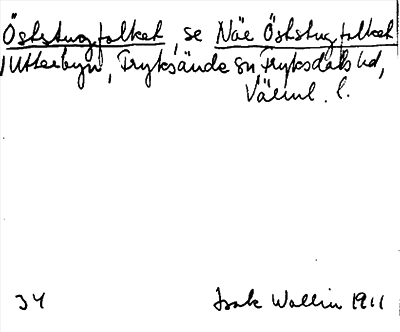 Öststugfolket, se Näe Öststugfolket
i Utterbyn, Fryksände sn Fryksdals hd,
Värml. l.
34 Isak Wallin 1911